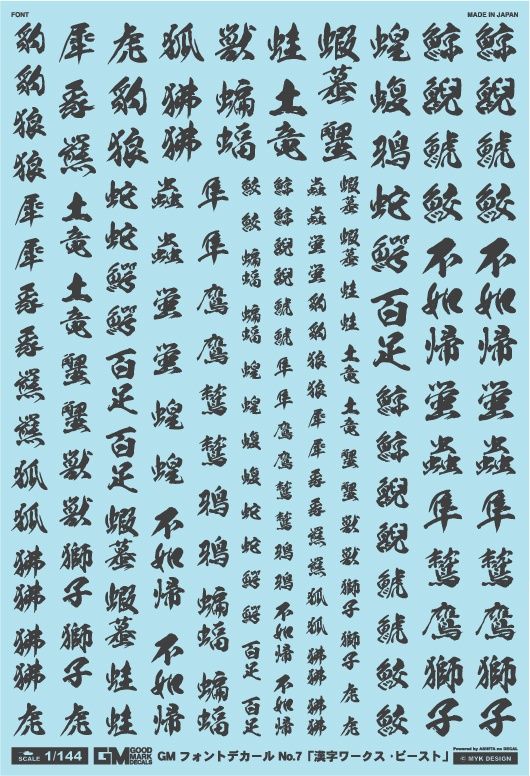 FONT
MADE IN JAPAN
豹豹狼狼犀犀豕豕羆羆狐狐狒狒狒狒虎
犀豕羆土竜土竜蟹蟹獣獣獅子獅子虎
虎豹狼蛇蛇鰐鰐百足百足蝦蟇蝦蟇蛙蛙
狐狒狒蟲蟲螢螢蝗蝗不如帰不如帰
獣蝙蝠隼隼鷹鷹鷲鷲鴉鴉蝙蝠蝙蝠
蛙土竜
蝦蟇蟹
鮫鮫蝙蝠蝙蝠蝗蝗蝮蝮蛇蛇鰐鰐百足百足
鯨鯨鯢鯢鯱鯱隼隼鷹鷹鷲鷲鴉鴉不如帰不如帰
蟲蟲螢螢豹豹狼狼犀犀豕豕羆羆狐狐狒狒狒狒
蝦蟇蝦蟇蛙蛙土竜土竜蟹蟹獣獣獅子獅子虎虎
蝗蝮鴉蛇鰐百足鯨鯨鯢鯢鯱鯱鮫鮫
鯨鯢鯱鮫不如帰螢蟲隼鷲鷹獅子
鯨鯢鯱鮫不如帰螢蟲隼鷲鷹獅子
SCALE 1/144
GM GOOD MARK DECALS
GM フォントデカール No.7「漢字ワークス・ビースト」
Powered by ASHITA no DECAL
© MYK DESIGN